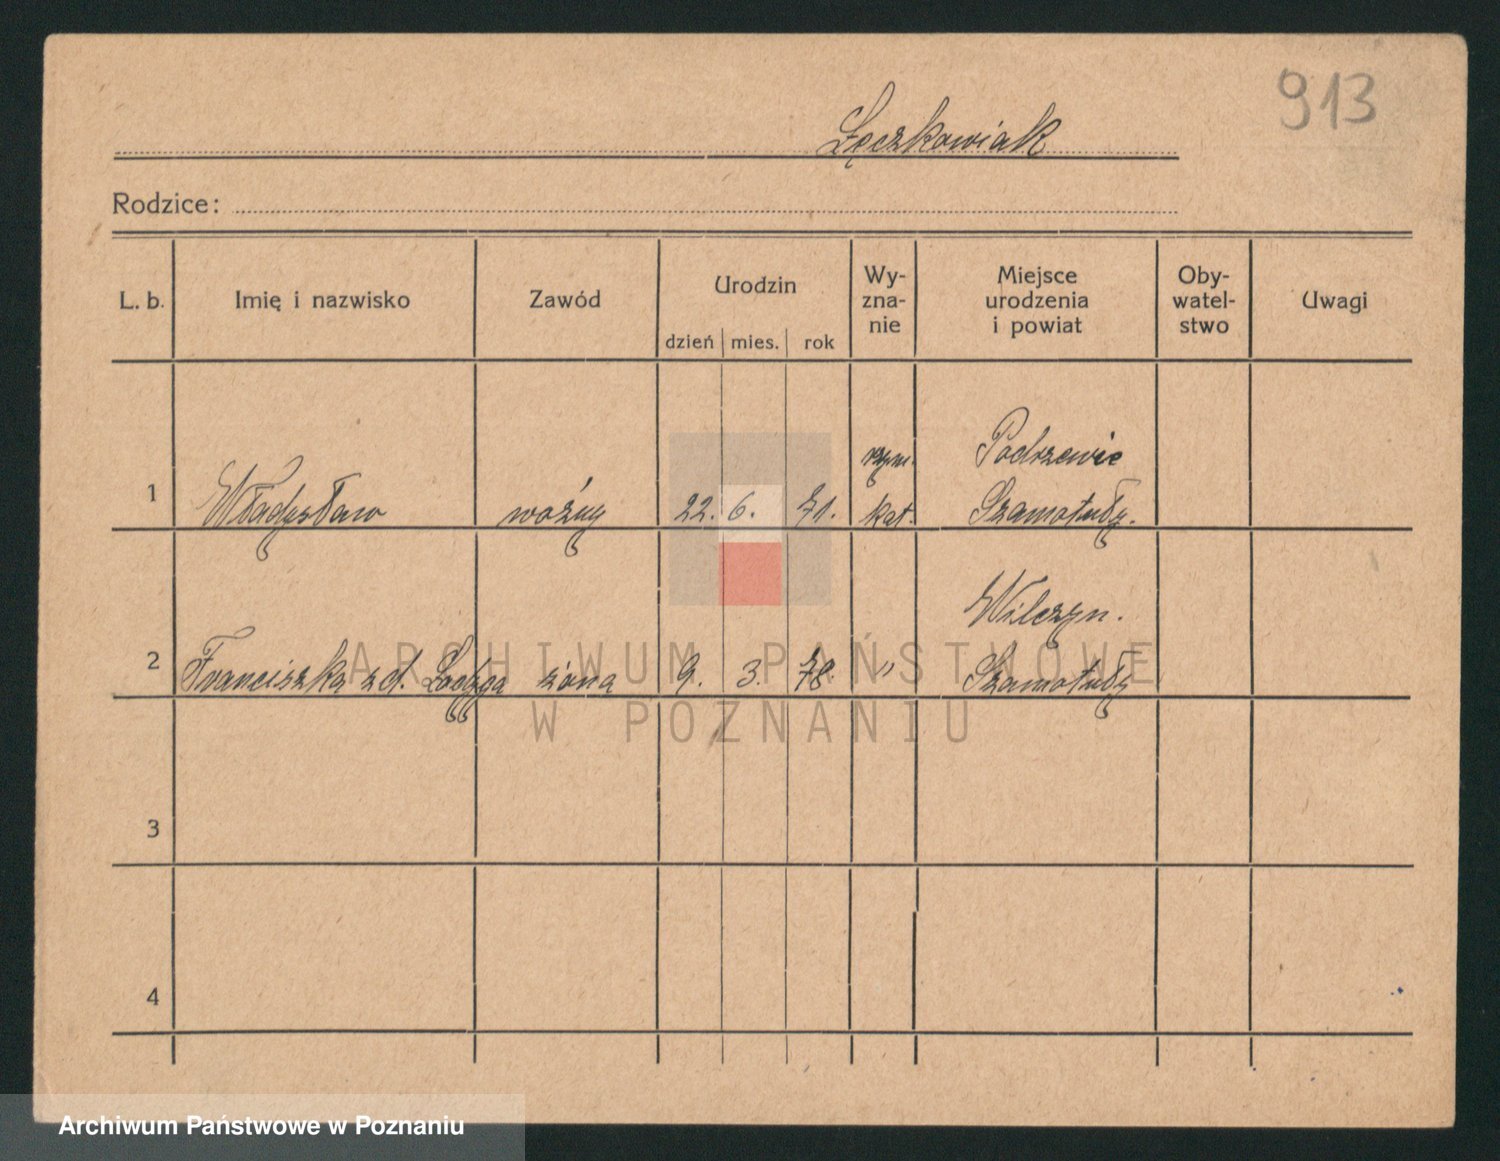 913
Łęczkowiak
Rodzice:
L. b. Imię i nazwisko Zawód Urodzin Wy- Miejsce Oby- Uwagi
zna- urodzenia watel-
dzień mies. rok nie i powiat stwo
rzym. Podrzewie
1 Władysław woźny 22. 6. 71. kat. Szamotuły.
Wilczyn.
2 Franciszka zd. żona 9. 3. 78. " Szamotuły
3
4
ARCHIWUM PAŃSTWOWE
W POZNANIU
Archiwum Państwowe w Poznaniu